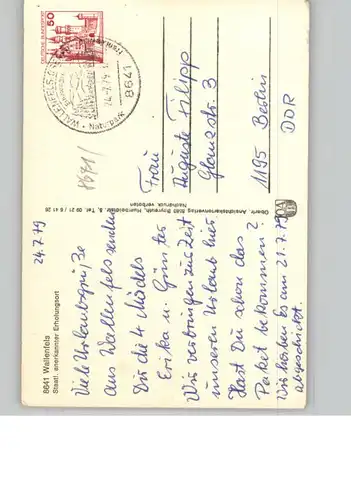 8641 Wallenfels
Staatl. anerkannter Erholungsort
24.7.79
Viele Urlaubsgrüße
aus Wallenfels senden
Dir die 4 Mädels
Erika u. Günter
Wir verbringen zur Zeit
unseren Urlaub hier.
Hast Du schon das 2.
Paket bekommen?
Wir haben es am 21.7.79
abgeschickt.
Oberfr. Ansichtskartenverlag, 8580 Bayreuth, Tel. 09 21 / 6 41 26
Nachdruck verboten
50
DEUTSCHE BUNDESPOST
WALLENFELS
Frankenwald
24.-7.79
8641
8671/
Frau
Auguste Filipp
Glanzstr. 3
1195 Berlin
DDR